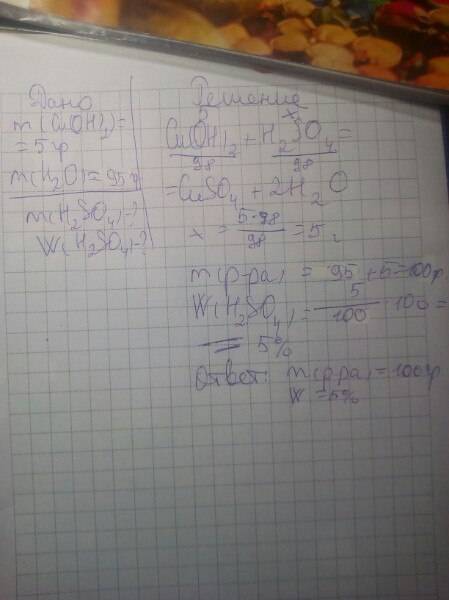 Дано
m(Cu(OH)2)=
=5гр
m(H2O)=95гр
m(H2SO4)-?
W(H2SO4)-?
Решение
5 x
Cu(OH)2 + H2SO4 =
98 98
=CuSO4 + 2H2O
x = 5·98/98 = 5г
m(р-ра) = 95+5=100гр
W(H2SO4) = 5/100 · 100 =
= 5%
Ответ: m(р-ра)=100гр
W =5%